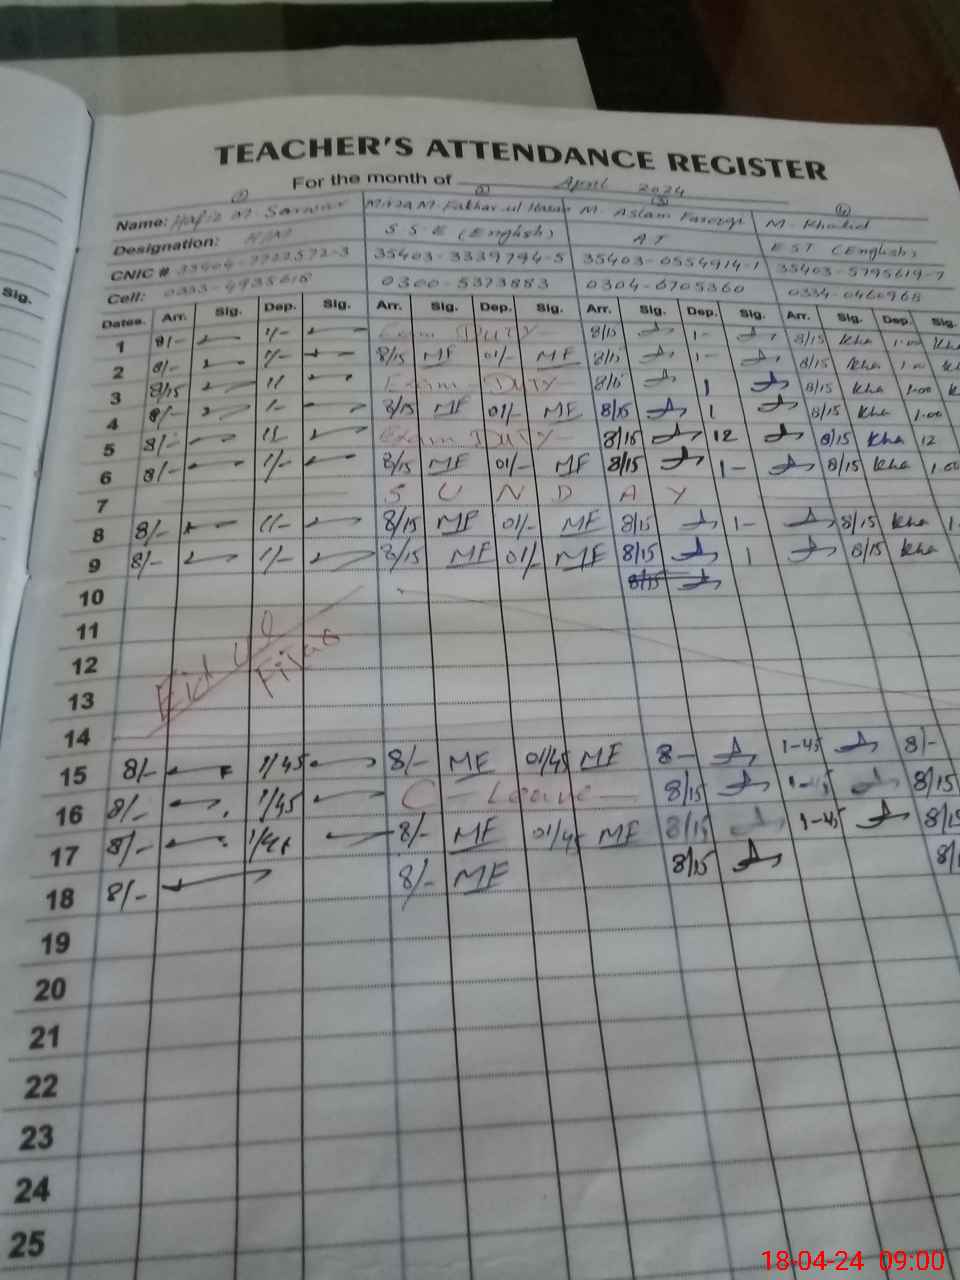 TEACHER'S ATTENDANCE REGISTER
For the month of April 2024
(1) (2) (3) (4)
Name: Hafiz M. Sarwar Mirza M. Fakhar ul Hasan M. Aslam M. Khalid
Designation: H/M S S E (English) A T E S T (English)
CNIC # 35403-3339794-5 35403-0554914-1 35403-5795619-7
Cell: 0300-5373883 0304-6705360 0334-0460968
Sig.
Dates. Arr. Sig. Dep. Sig. Arr. Sig. Dep. Sig. Arr. Sig. Dep. Sig. Arr. Sig. Dep. Sig.
1 8/- 1/- Exam DUTY 8/15 1- 8/15 Kha 1.00 Kha
2 8/- 1/- 8/15 MF 01/- MF 8/15 1- 8/15 Kha 1.00
3 8/15 Exam - DUTY 8/15 1 8/15 Kha 1.00
4 8/- 1- 8/15 MF 01/- MF 8/15 1 8/15 Kha 1.00
5 8/- Exam DUTY 8/15 12 8/15 Kha 12
6 8/- 1/- 8/15 MF 01/- MF 8/15 1- 8/15 Kha 1.00
7 S U N D A Y
8 8/- 1/- 8/15 MF 01/- MF 8/15 1- 8/15 Kha 1-
9 8/- 1/- 8/15 MF 01/- MF 8/15 1 8/15 Kha
10 8/15
11
12 Eid ul
13
14
15 8/- 1/45 8/- MF 01/45 MF 8- 1-45 8/-
16 8/- 1/45 C - Leave 8/15 1-45 8/15
17 8/- 1/45 8/- MF 01/45 MF 8/15 1-45 8/15
18 8/- 8/- MF 8/15
19
20
21
22
23
24
25
18-04-24 09:00